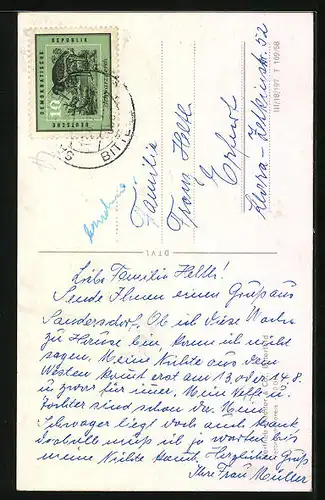 DEUTSCHE
DEMOKRATISCHE
REPUBLIK
10
BITTE
Familie
Franz Helle
Erfurt
Clara-Zetkinstr. 52
III/18/197 T 169/58
DTVL
Liebe Familie Helle!
Sende Ihnen einen Gruß aus
Sandersdorf. Ob ich diese Woche
zu Hause bin, kann ich nicht
sagen. Meine Nichte aus dem
Westen kommt erst am 13. oder 14.8.
u zwar für immer. Mein Neffe u.
Tochter sind schon da. Mein
Schwager liegt doch auch krank,
deshalb muß ich ja warten bis
meine Nichte kommt. Herzlichen Gruß
Ihre Frau Müller